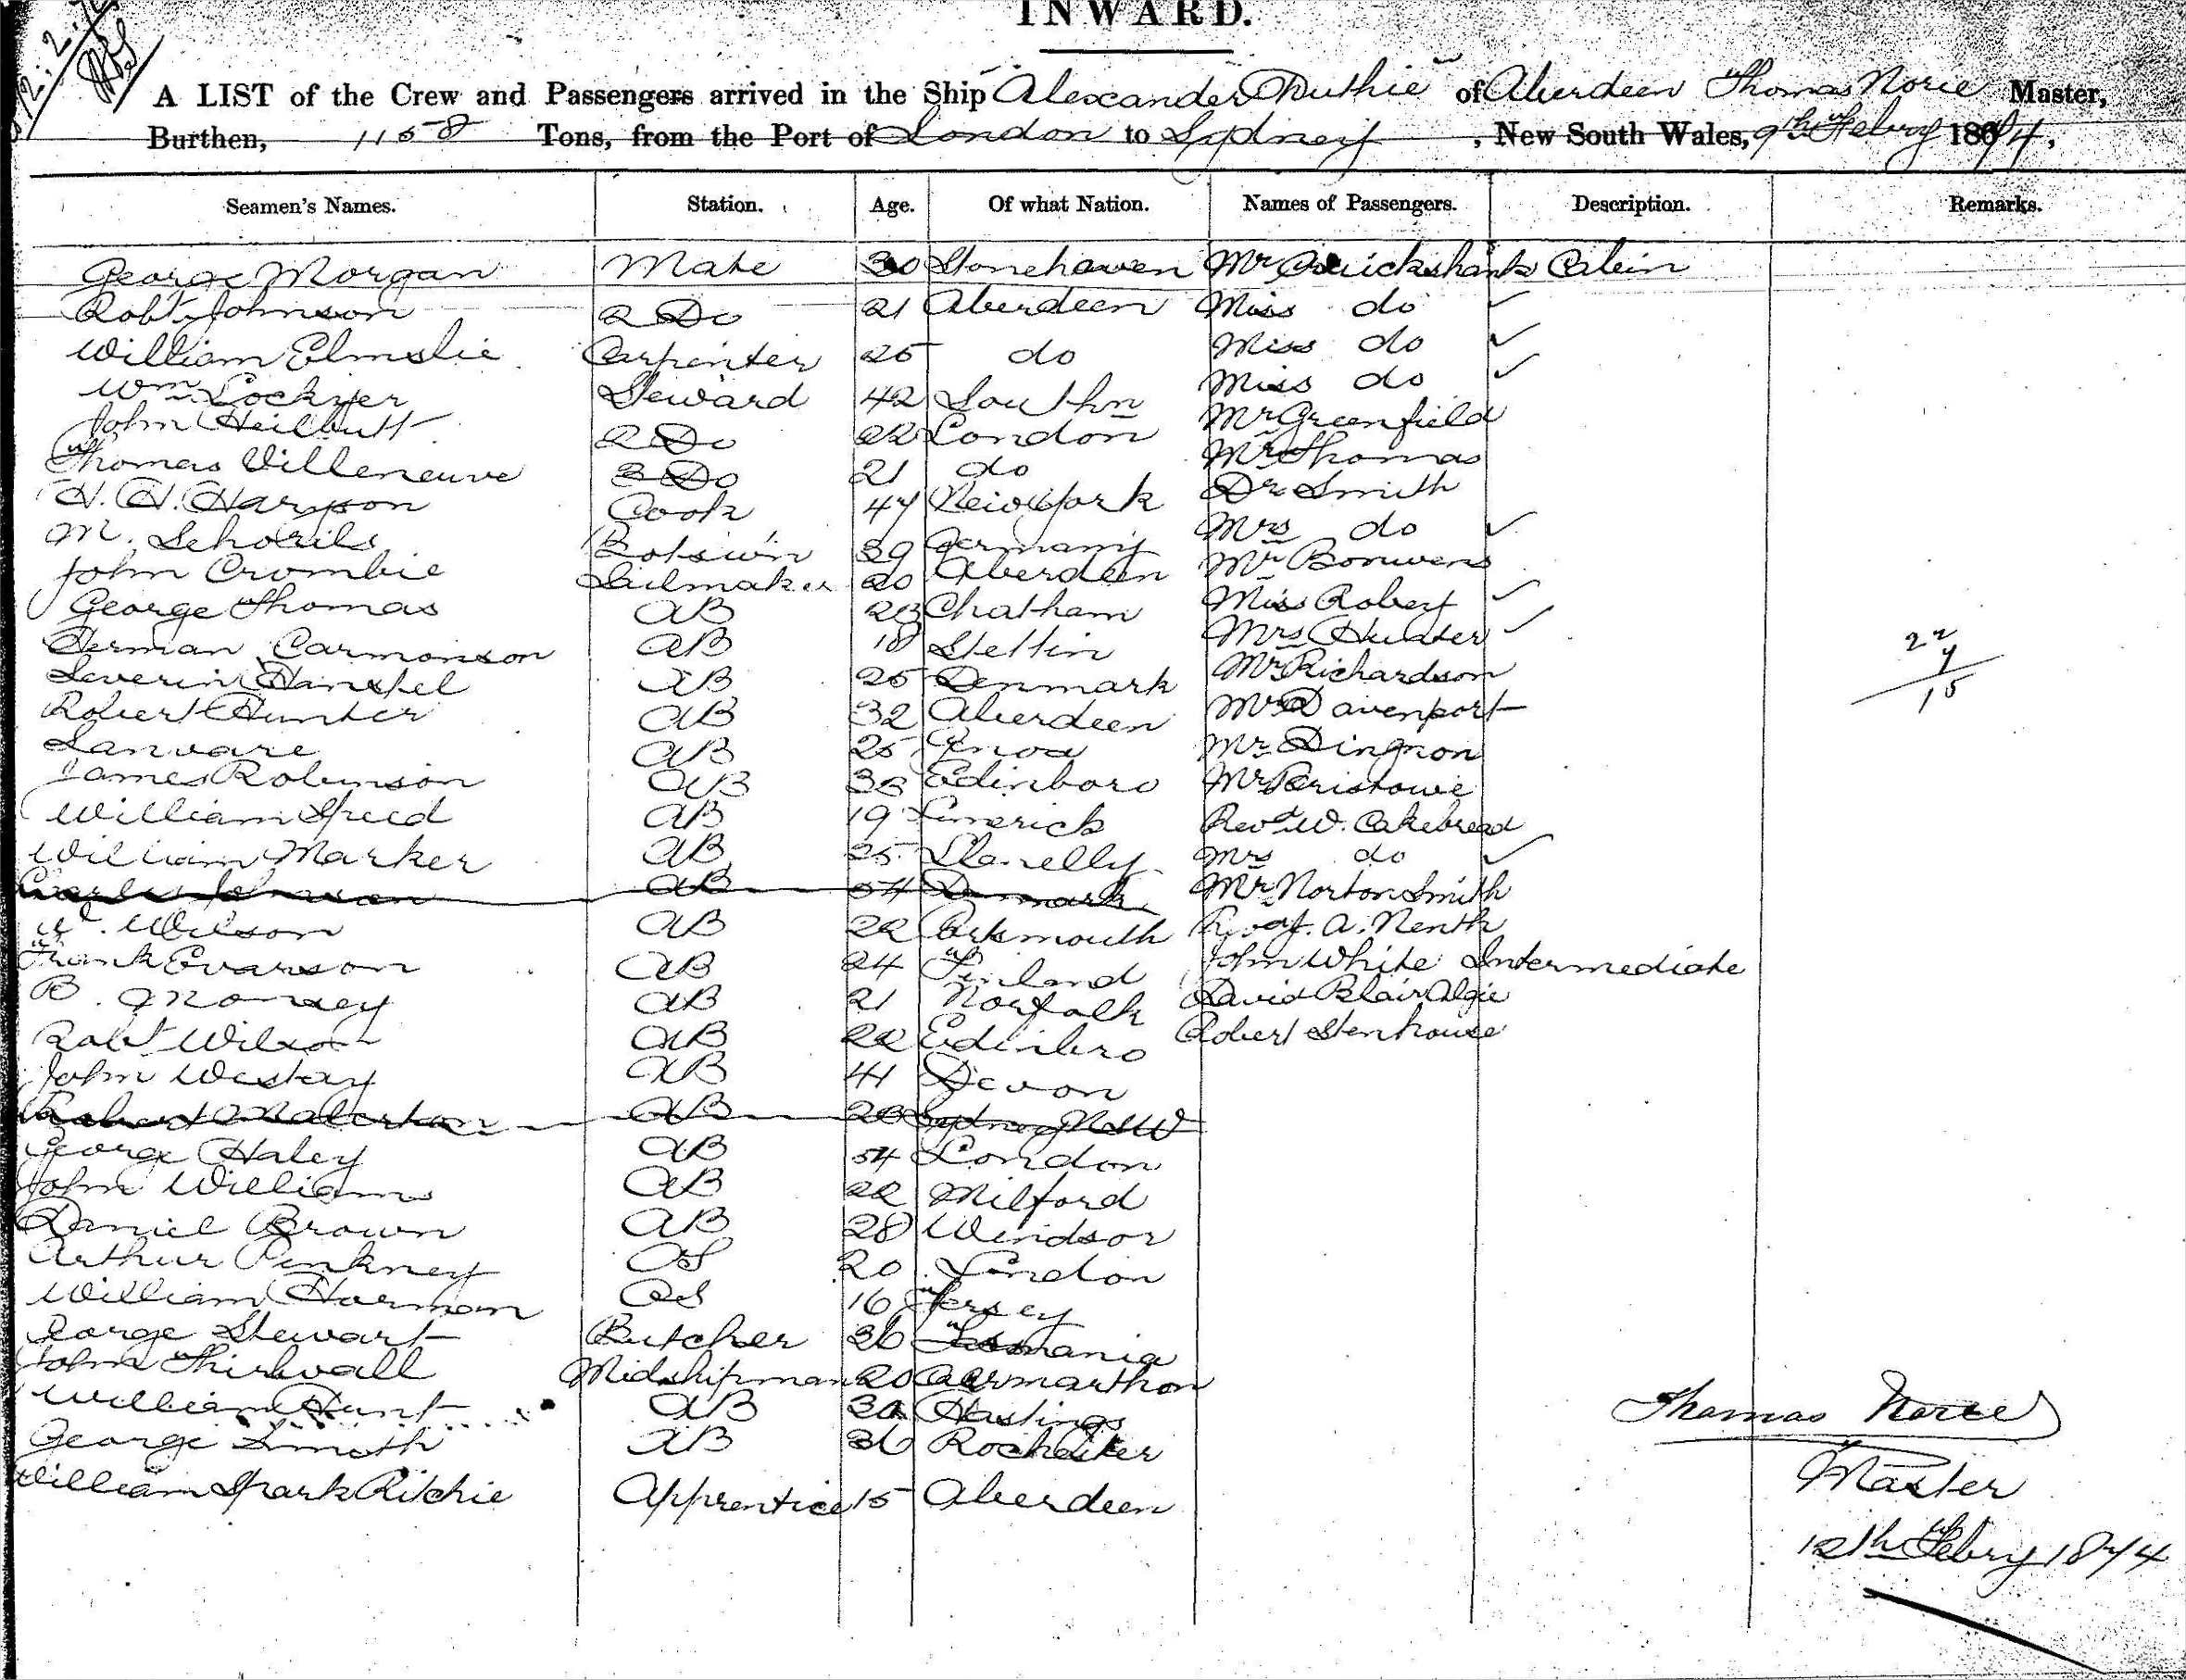 INWARD.
A LIST of the Crew and Passengers arrived in the Ship Alexander Duthie of Aberdeen Thomas Norie Master,
Burthen, 1158 Tons, from the Port of London to Sydney, New South Wales, 9th Febry 1874.
Seamen's Names. Station. Age. Of what Nation. Names of Passengers. Description. Remarks.
George Morgan Mate 30 Stonehaven Mr Cruickshank Cabin
Robt Johnson 2 Do 21 Aberdeen Miss do ✓
William Elmslie Carpenter 25 do Miss do ✓
Wm Lockyer Steward 42 Southn Miss do ✓
John Heilbutt 2 Do 22 London Mr Greenfield
Thomas Villeneuve 3 Do 21 do Mr Thomas
H. H. Harrson Cook 47 New York Dr Smith
M. Botswn 39 Germany Mrs do ✓
John Crombie Sailmaker 20 Aberdeen Mr Bonwens
George Thomas AB 23 Chatham Miss Robey ✓
Herman Carmonson AB 18 Stettin Mrs Hunter ✓
Severin AB 25 Denmark Mr Richardson
Robert Hunter AB 32 Aberdeen Mr Davenport
Sanvare AB 25 Genoa Mr Dingnon
James Robinson AB 33 Edinboro Mr Bristowe
William Speed AB 19 Limerick Revd W. Cakebread
William Marker AB 25 Llanelly Mrs do ✓
Charles Johnson AB 54 Denmark Mr Norton Smith
Wilson AB 22 Portsmouth Prof. A. Nenth
Frank Evarson AB 24 Finland John White Intermediate
B. Monsey AB 21 Norfolk David Blair Algie
Robt Wilson AB 22 Edinbro Robert Stenhouse
John Westay AB 41 Devon
Robert AB 23 Sydney NSW
George Haley AB 54 London
John Williams AB 22 Milford
Daniel Brown AB 28 Windsor
Arthur Pinkney OS 20 London
William Horman OS 16 Jersey
George Stewart Butcher 36 Tasmania
John Thirlwall Midshipman 20 Caermarthon
William Hunt AB 32 Hastings
George Smith AB 36 Rochester
William Spark Ritchie Apprentice 15 Aberdeen
22
7
15
Thomas Norie
Master
12th Febry 1874